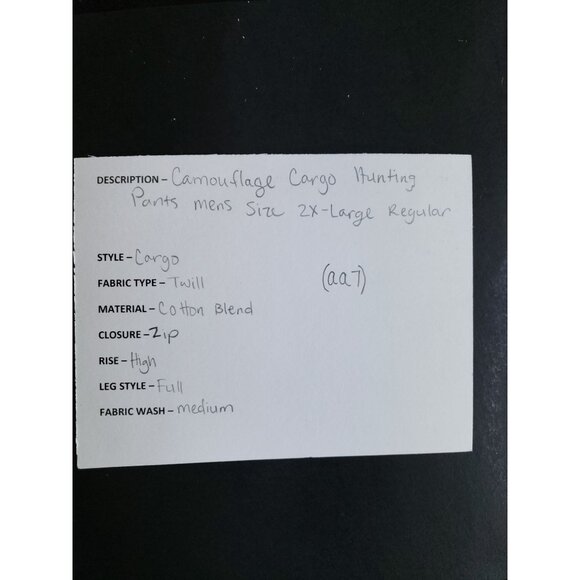 DESCRIPTION – Camouflage Cargo Hunting
Pants mens Size 2X-Large Regular
STYLE – Cargo
FABRIC TYPE – Twill
(aa7)
MATERIAL – Cotton Blend
CLOSURE – Zip
RISE – High
LEG STYLE – Full
FABRIC WASH – medium